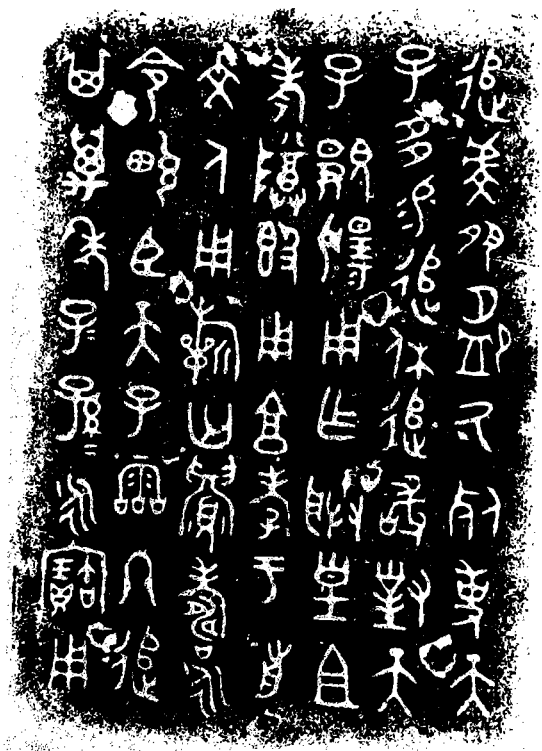 追虔夙夕卹氒死事天
子多易追休追敢對天
子覭揚用乍朕皇且
考尊簋用享孝于前
文人用祈匄眉壽永
令畯臣天子霝冬追
其萬年子=孫=永寶用